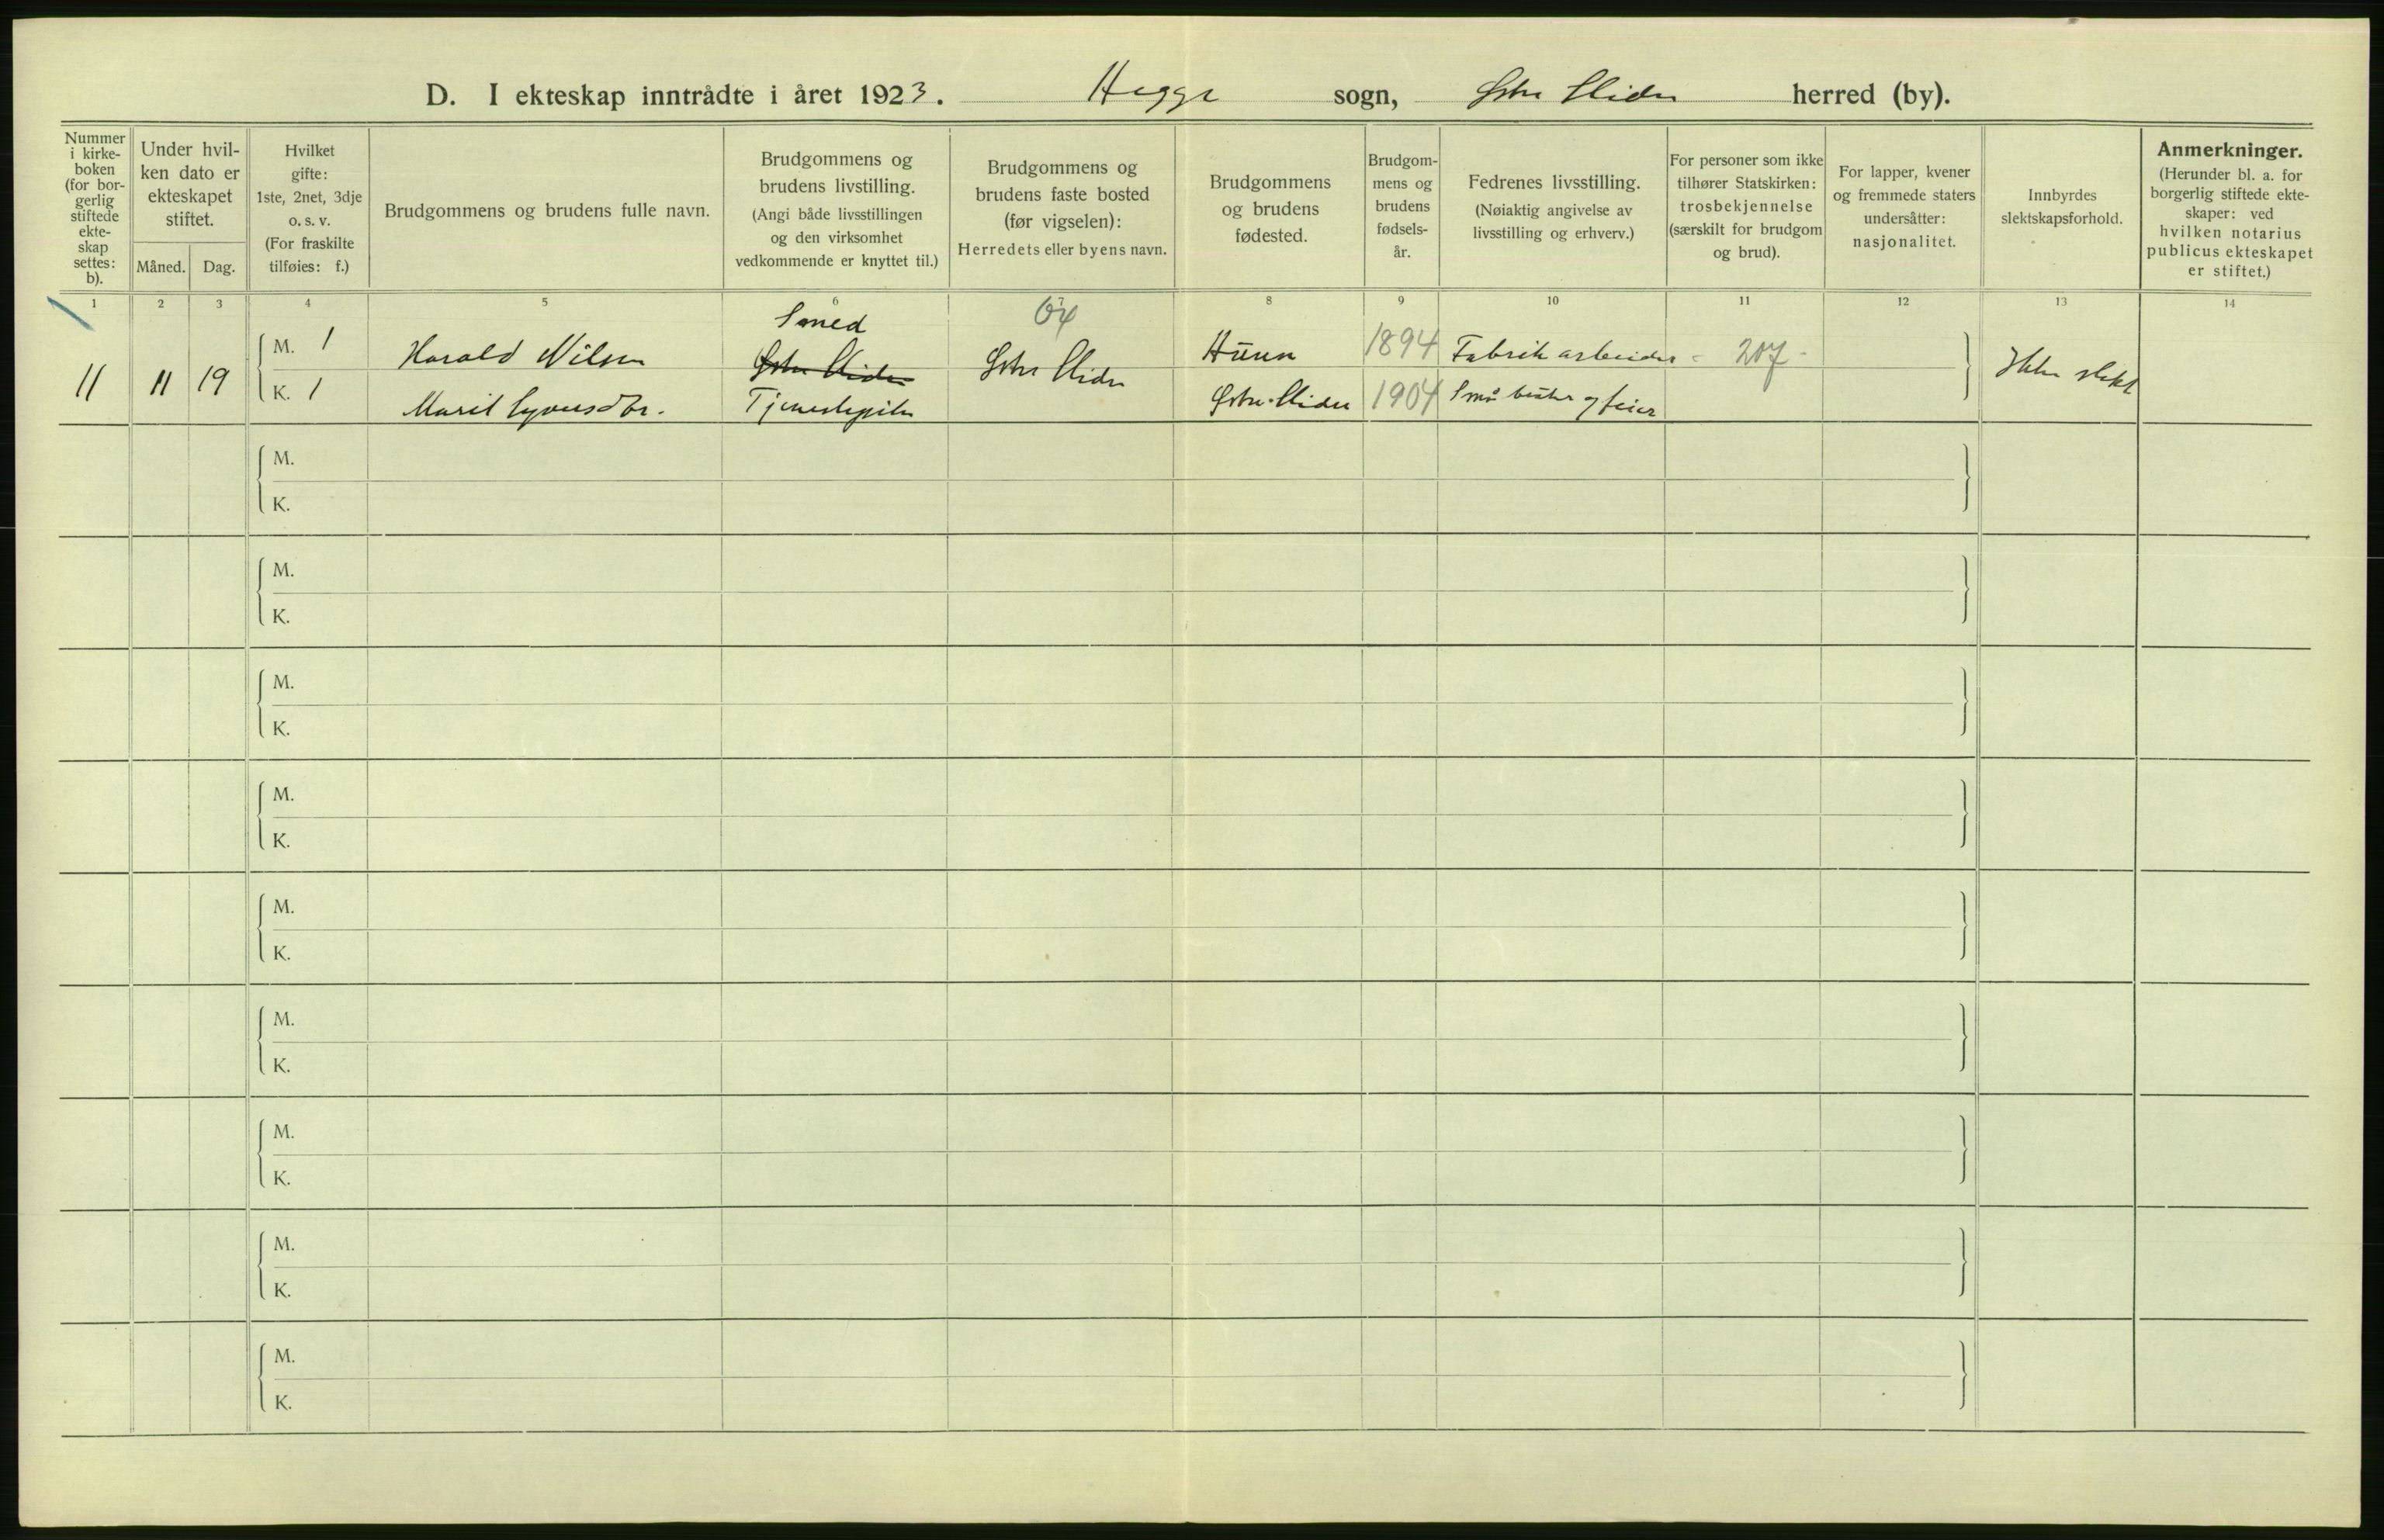 D. I ekteskap inntrådte i året 1923. Hegge sogn, Østre Slidre herred (by).
Nummer i kirke-boken (for bor-gerlig stiftede ekte-skap settes: b).
Under hvil-ken dato er ekteskapet stiftet.
Måned. Dag.
Hvilket gifte: 1ste, 2net, 3dje o. s. v. (For fraskilte tilføies: f.)
Brudgommens og brudens fulle navn.
Brudgommens og brudens livstilling. (Angi både livsstillingen og den virksomhet vedkommende er knyttet til.)
Brudgommens og brudens faste bosted (før vigselen): Herredets eller byens navn.
Brudgommens og brudens fødested.
Brudgom-mens og brudens fødsels-år.
Fedrenes livsstilling. (Nøiaktig angivelse av livsstilling og erhverv.)
For personer som ikke tilhører Statskirken: trosbekjennelse (særskilt for brudgom og brud).
For lapper, kvener og fremmede staters undersåtter: nasjonalitet.
Innbyrdes slektskapsforhold.
Anmerkninger. (Herunder bl. a. for borgerlig stiftede ekte-skaper: ved hvilken notarius publicus ekteskapet er stiftet.)
1 2 3 4 5 6 7 8 9 10 11 12 13 14
Smed
11 11 19 M. 1 Harald Nilsen Østre Slidre Østre Slidre Hunn 1894 Fabrikarbeider - 207 - Ikke slekt
K. 1 Marit Syversdtr. Tjenestepike Østre Slidre 1904 Småbruker og feier
M.
K.
M.
K.
M.
K.
M.
K.
M.
K.
M.
K.
M.
K.
M.
K.
M.
K.